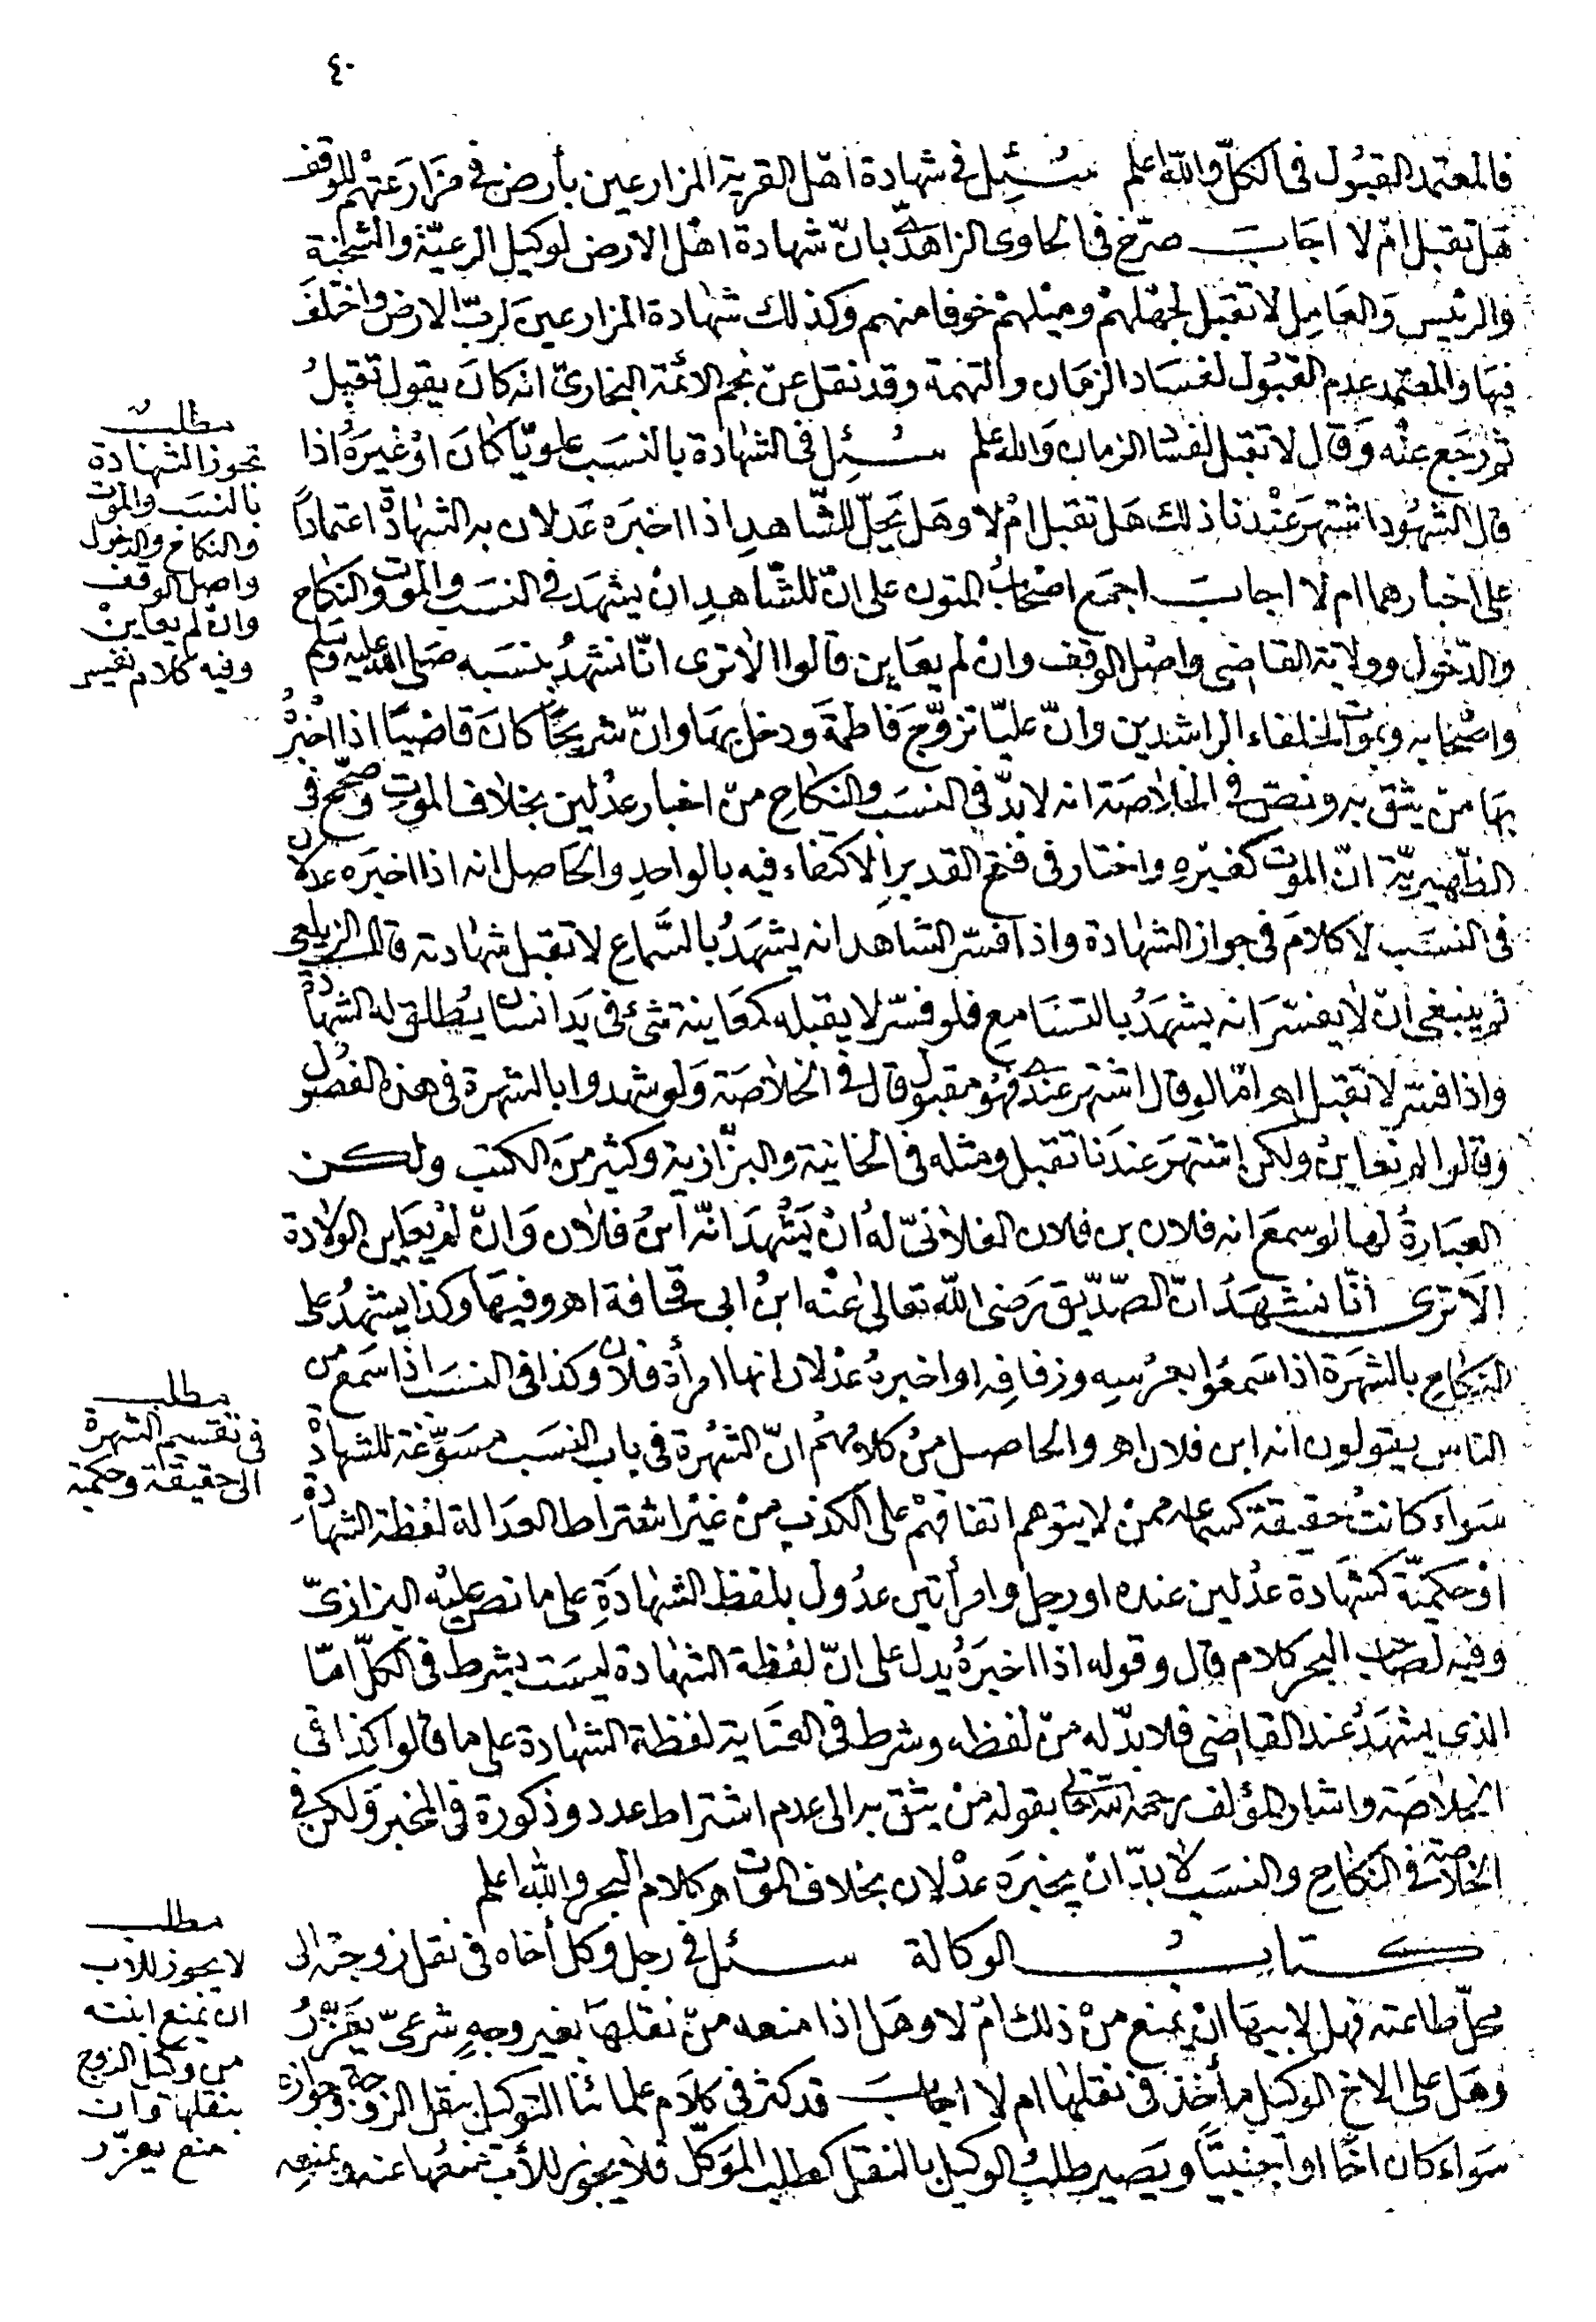 ٤٠
فالمعتمد القبول في الكل والله اعلم سئل في شهادة اهل القرية المزارعين بأرض في مزارعتهم للوقف
هل تقبل ام لا اجاب صرّح في الحاوى الزاهدى بانّ شهادة اهل الارض لوكيل الرعيّة والشحنة
والرئيس والعامل لا تقبل لجهلهم وميلهم خوفا منهم وكذلك شهادة المزارعين لربّ الارض واختلف
فيها والمعتمد عدم القبول لفساد الزمان والتهمة وقد نقل عن نجم الائمة البخارىّ انه كان يقول تقبل
ثم رجع عنه وقال لا تقبل لفساد الزمان والله اعلم سئل في الشهادة بالنسب علويّا كان او غيره اذا
قال الشهود اشتهر عندنا ذلك هل تقبل ام لا وهل يحلّ للشاهد اذا اخبره عدلان به الشهادة اعتمادًا
على اخبارهما ام لا اجاب اجمع اصحاب المتون على انّ للشّاهد ان يشهد في النسب والموت والنكاح
والدّخول وولاية القاضى واصل الوقف وان لم يعاين قالوا الا ترى انّا نشهد بنسبه صلى الله عليه وسلم
واصحابه وبموت الخلفاء الراشدين وانّ عليّا تزوّج فاطمة ودخل بها وانّ شريحًا كان قاضيًا اذا اخبر
بها من يثق به ونصّ في الخلاصة انه لا بدّ في النسب والنكاح من اخبار عدلين بخلاف الموت وصحّح في
الظّهيريّة انّ الموت كغيره واختار في فتح القدير الاكتفاء فيه بالواحد والحاصل انه اذا اخبره عدلان
في النسب لا كلام في جواز الشهادة واذا فسّر الشاهد انه يشهد بالسّماع لا تقبل شهادته قال الزيلعى
ثم ينبغى ان لا يفسّر انه يشهد بالتسامع فلو فسّر لا يقبله كمعاينة شئ في يد انسان يطلق له الشهادة
واذا فسّر لا تقبل اهـ امّا لو قال اشتهر عندى فهو مقبول قال في الخلاصة ولو شهدوا بالشهرة في هذه الفصول
وقالوا لم نعاين ولكن اشتهر عندنا تقبل ومثله في الخانية والبزّازية وكثير من الكتب ولكن
العبارة لها لو سمع انه فلان بن فلان الفلانىّ له ان يشهد انّه ابن فلان وان لم يعاين الولادة
الا ترى انّا نشهد انّ الصّدّيق رضى الله تعالى عنه ابن ابى قحافة اهـ وفيها وكذا يشهد على
النكاح بالشهرة اذا سمعوا بعرسه وزفافه او اخبره عدلان انها امرأة فلان وكذا في النسب اذا سمع من
الناس يقولون انه ابن فلان اهـ والحاصل من كلامهم انّ الشهرة في باب النسب مسوّغة للشهادة
سواء كانت حقيقة كسماعه ممن لا يتوهم اتفاقهم على الكذب من غير اشتراط العدالة لفظة الشهادة
او حكميّة كشهادة عدلين عنده او رجل وامرأتين عدول بلفظ الشهادة على ما نص عليه البزازىّ
وفيه لصاحب البحر كلام قال وقوله اذا اخبره يدل على انّ لفظة الشهادة ليست بشرط في الكلّ امّا
الذى يشهد عند القاضى فلا بدّ له من لفظه وشرط في العناية لفظة الشهادة على ما قالوا كذا في
الخلاصة واشار المؤلف رحمه الله تعالى بقوله من يثق به الى عدم اشتراط عدد وذكورة في المخبر ولكن في
الخلاصة في النكاح والنسب لا بدّ ان يخبره عدلان بخلاف الموت اهـ كلام البحر والله اعلم
كتاب الوكالة سئل في رجل وكل أخاه في نقل زوجته الى
محلّ طاعته فهل لابيها ان يمنع من ذلك ام لا وهل اذا منعه من نقلها بغير وجه شرعىّ يعزّر
وهل على الاخ الوكيل مأخذ في نقلها ام لا اجاب قد كثر في كلام علمائنا التوكيل بنقل الزوجة وجوازه
سواء كان اخا او اجنبيّا ويصير طلب الوكيل بالنقل كطلب الموكّل فلا يجوز للأب منعها عنه وبمنعه
مطلب
تجوز الشهادة
بالنسب والموت
والنكاح والدخول
واصل الوقف
وان لم يعاين
وفيه كلام نفيس
مطلب
في تقسيم الشهرة
الى حقيقة وحكمية
مطلب
لا يجوز للاب
ان يمنع ابنته
من وكيل الزوج
بنقلها وان
منع يعزّر